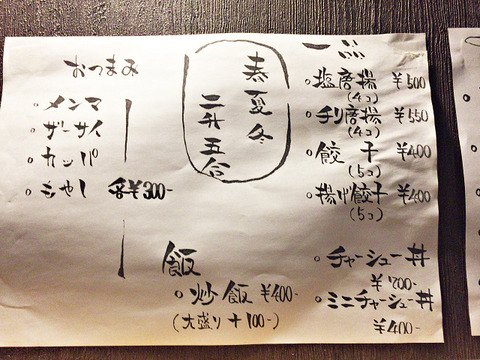 一品
塩唐揚 ¥500
(4コ)
チリ唐揚 ¥550
(4コ)
餃子 ¥400
(5コ)
揚げ餃子 ¥400
(5コ)
春夏冬
二升五合
おつまみ
メンマ
ザーサイ
カッパ
もやし 各¥300-
飯
炒飯 ¥400-
(大盛り+100-)
チャーシュー丼
¥700-
ミニチャーシュー丼
¥400-